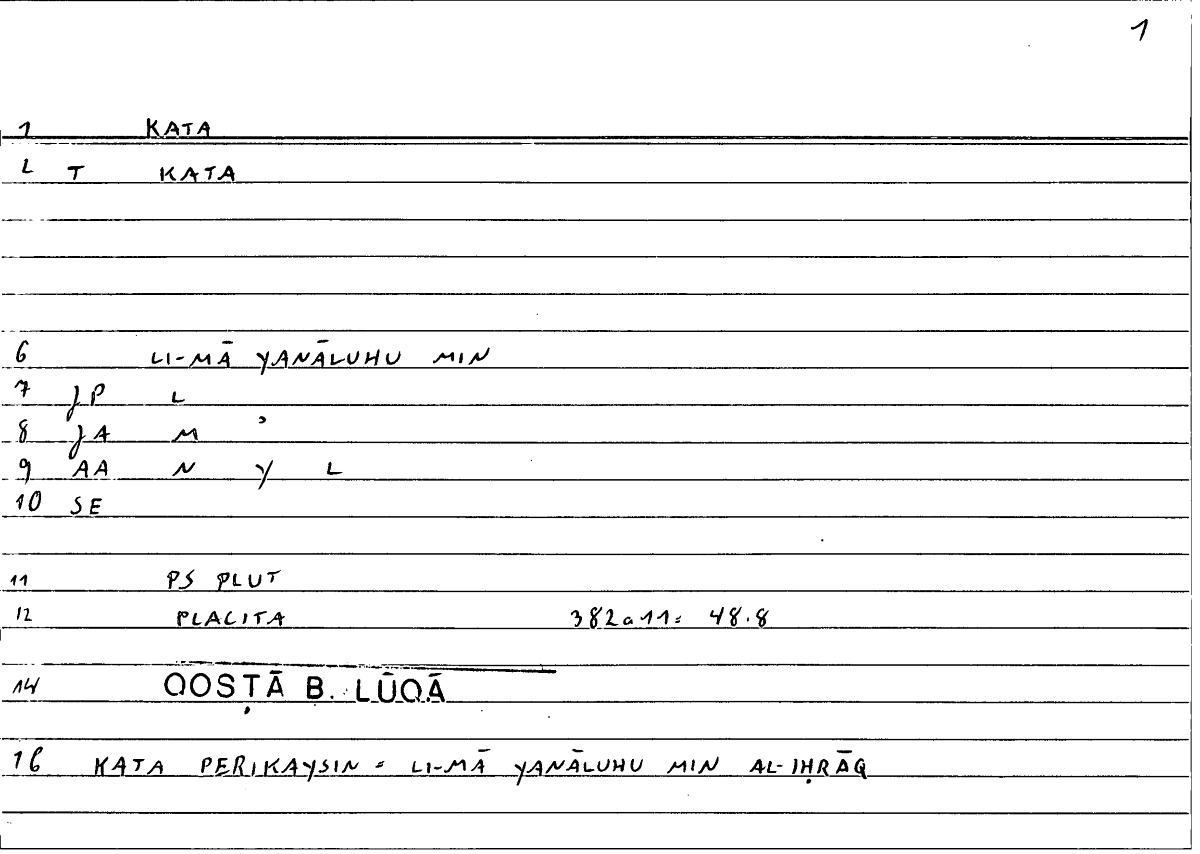 1
1 KATA
L T KATA
6 LI-MĀ YANĀLUHU MIN
7 JP L
8 JA M ʾ
9 AA N Y L
10 SE
11 PS PLUT
12 PLACITA 382a11= 48.8
14 QOSṬĀ B. LŪQĀ
16 KATA PERIKAYSIN = LI-MĀ YANĀLUHU MIN AL-IḤRĀQ